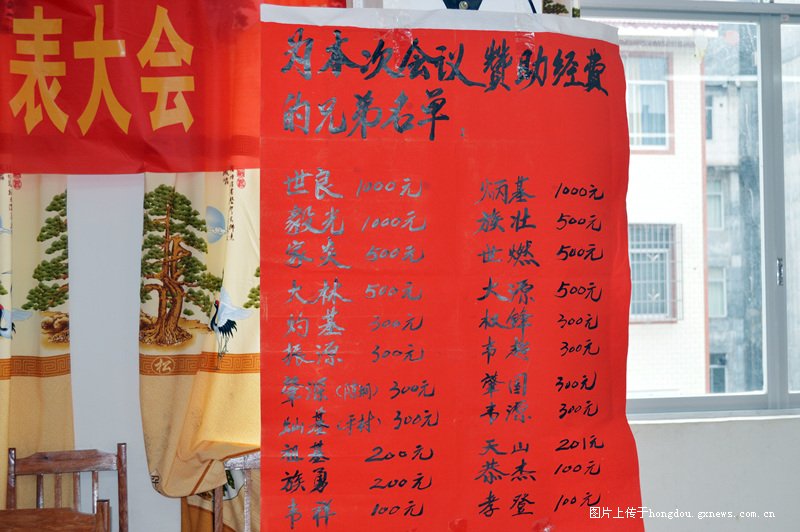 表大会
为本次会议赞助经费
的兄弟名单
世良 1000元 炳基 1000元
毅光 1000元 族壮 500元
家炎 500元 世燃 500元
大林 500元 大源 500元
灼基 300元 权锋 300元
振源 300元 韦 300元
肇源 300元 肇国 300元
灿基(平村) 300元 韦源 300元
祖基 200元 天山 201元
族勇 200元 恭杰 100元
韦祥 100元 孝登 100元
松
图片上传于hongdou.gxnews.com.cn